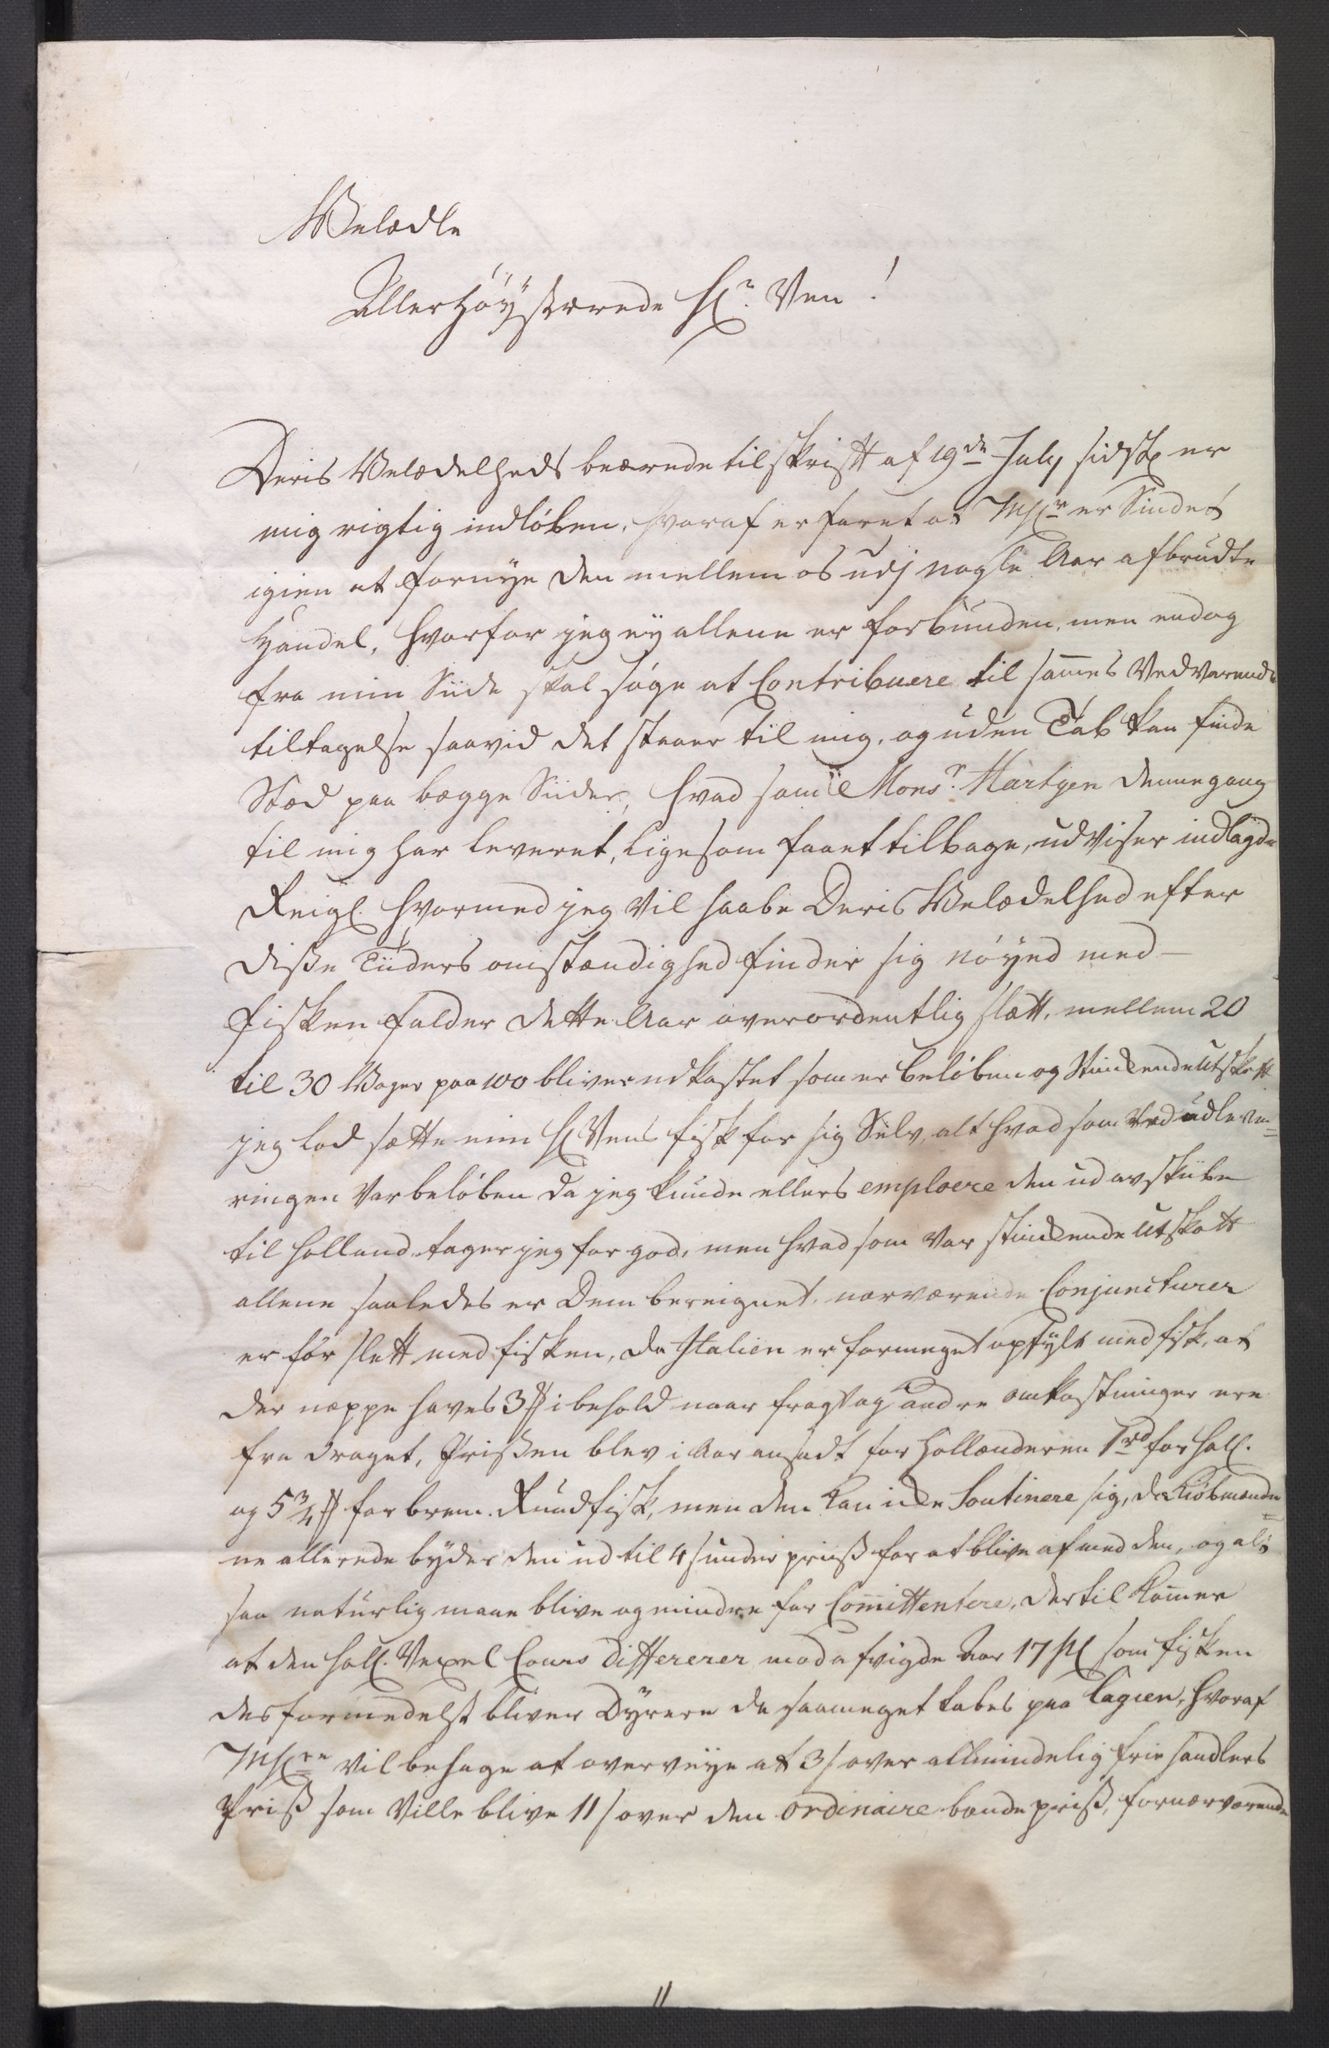 Welædle
Allerhøystærede Hr. Ven!
Deris Velædelheds beærede tilskrift af 19de July sidst er
mig rigtig indløben, hvoraf erfaret at MHr er Sindet
igien at fornye den mellem os udj nogle Aar afbrudte
Handel, hvorfor jeg ey allene er forbunden, men endog
fra min Siide skal søge at Contribuere til sammes Vedvarende
tiltagelse saavid det staaer til mig, og uden Tab kan finde
Stæd paa begge Siider, hvad som Monsr. Hartgen dennegang
til mig har leveret, ligesom faaet tilbage, udviser indlagde
Reigl. hvormed jeg vil haabe Deris Velædelhed efter
disse Tiiders omstændighed finder sig nöyed med —
fisken falder dette Aar overordentlig slætt, mellem 20
til 30 Woger paa 100 bliver udkastet som er beløben og Stinckende utskott
jeg lod sætte min H Vens fisk for sig Selv, alt hvad som ved udleve=
ringen var beløben da jeg kunde ellers emploere den ud at skibe
til Holland tager jeg for god, men hvad som var stinckende utskott
allene saaledes er Dem bereignet, nærværende Conjuncturer
er før slett med fisken, da Italien er formeget opfylt med fisk, at
der neppe haves 3 ß i behold naar fragt og andre omkostninger ere
fra draget, Prissen blev i Aar ansadt for Hollænderen 1 rd for holl.
og 5 3/4 ß for brem. Rundfisk, men den kan icke Soutinere sig, da Kiöbmænde=
ne allerede byder den ud til 4 s under priss for at blive af med den, og alt
saa naturlig maae blive og mindre for Comittentere, dertil kommer
at den holl. Vexel Cours differerer mod afvigde Aar 17 som fisken
desformedelst bliver Dyrere da saameget tabes paa lagien, hvoraf
MHren vil behage at overveye at 3 s over almindelig frie handlers
Priss som ville blive 11 s over den ordinaire bonde priss, fornærværende